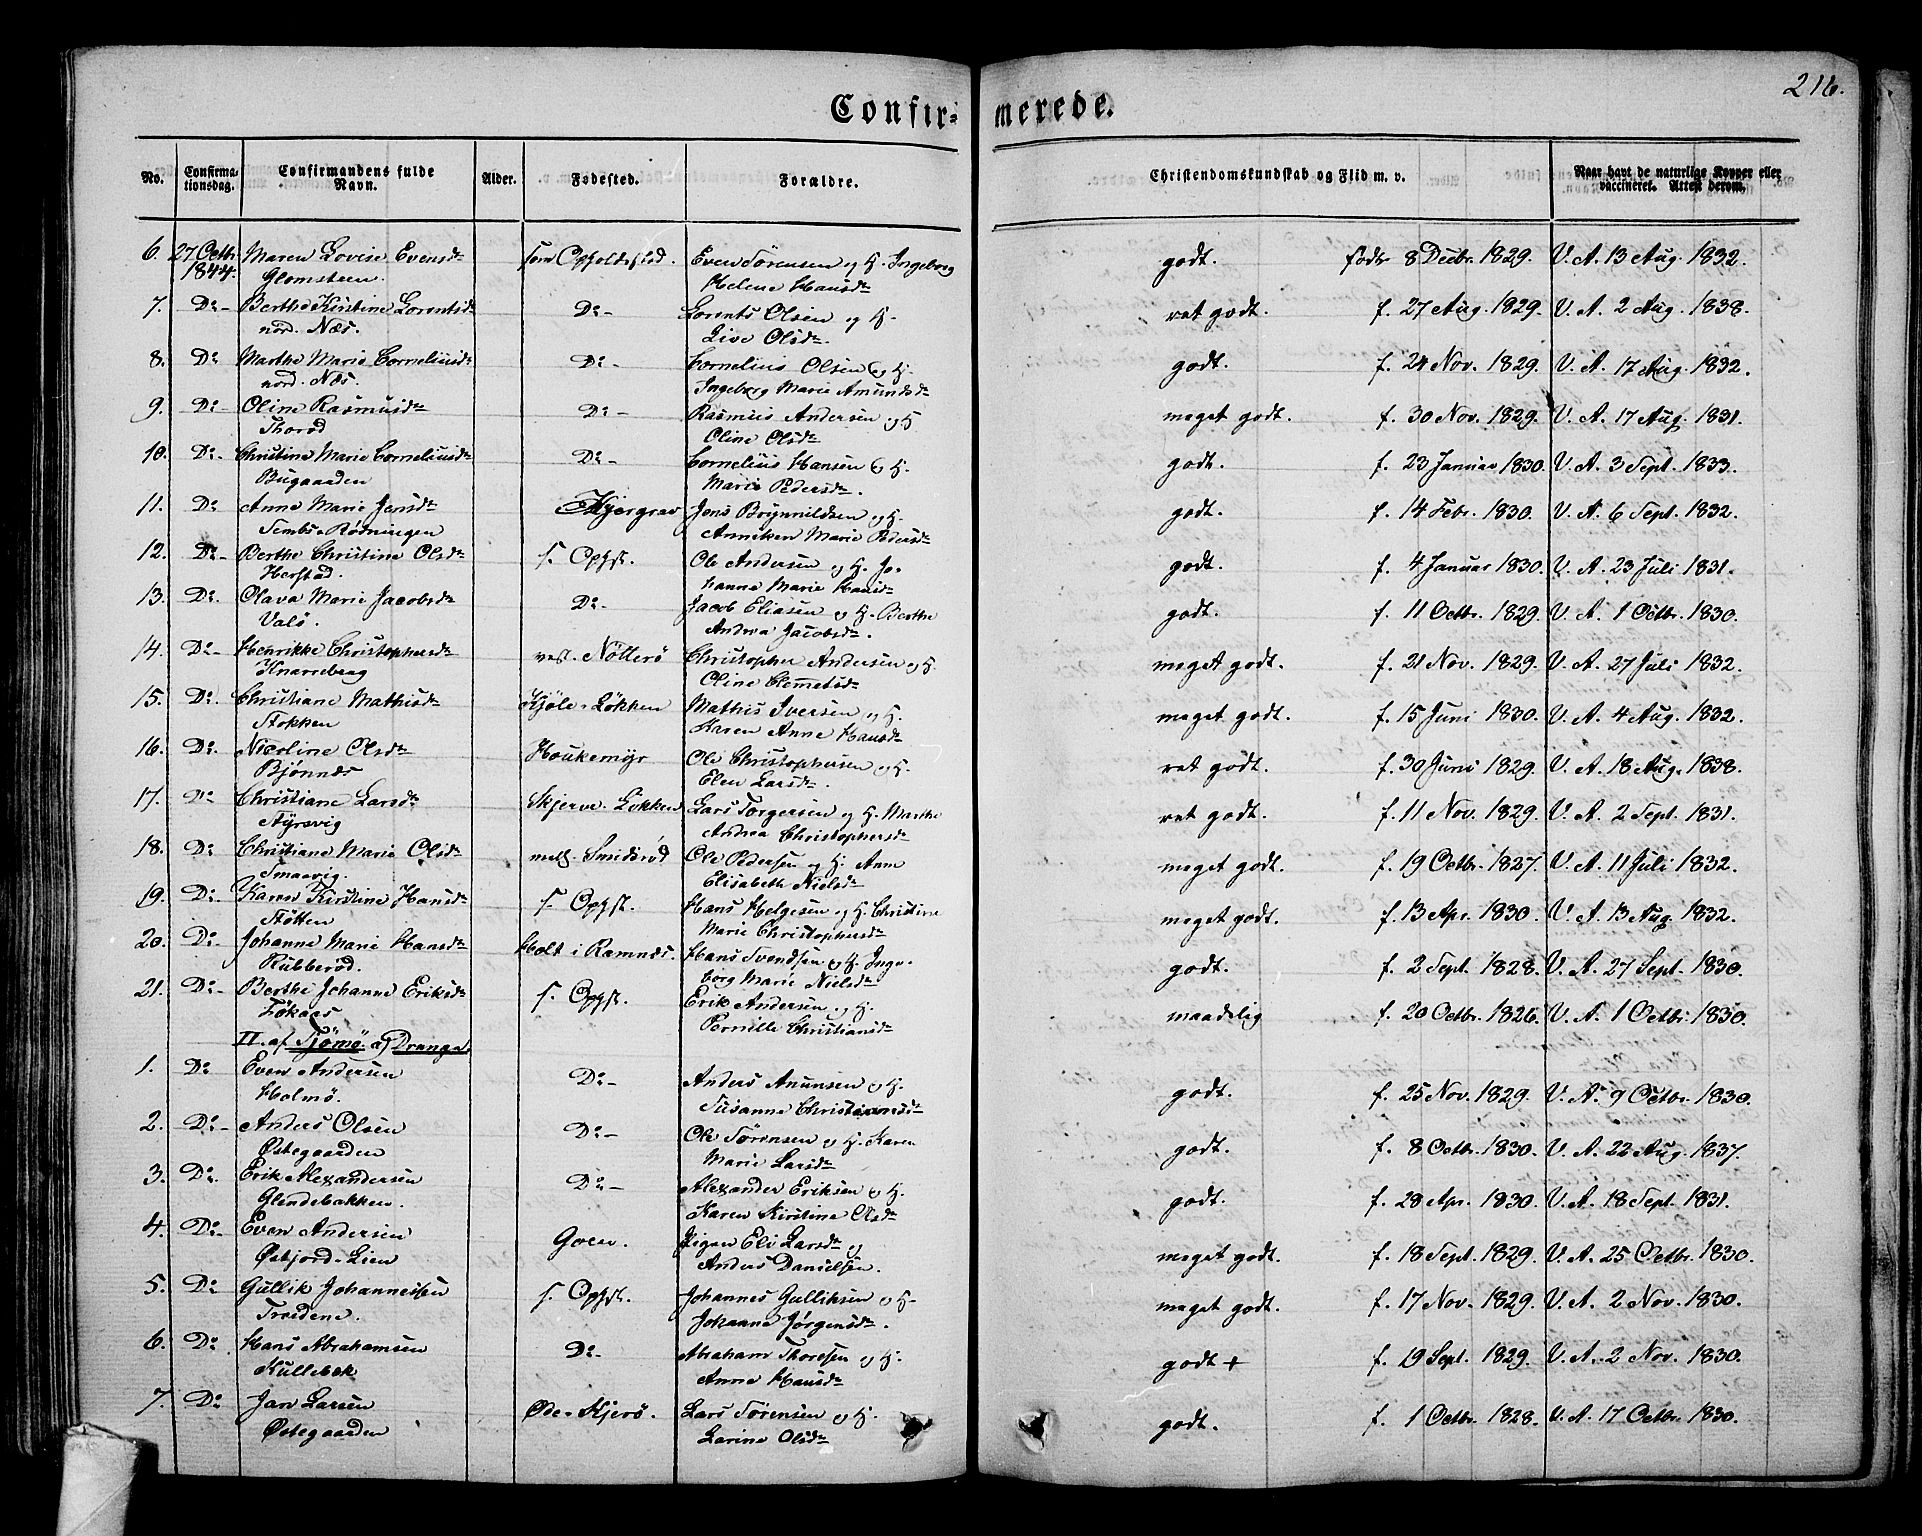 216.
Confir= merede.
No. Confirmationsdag. Confirmandens fulde Navn. Alder. Fødested. Forældre. Christendomskundskab og Flid m. v. Naar havt de naturlige Kopper eller vaccineret. Attest derom.
6. 27 Octbr. 1844. Maren Lovise Evensdr som Opholdsstad. Even Sørensen og H. Ingeborg godt. født 8 Decbr. 1829. V. A. 13 Aug. 1832.
Glomsteen. Helene Hansdr
7. Do - Berthe Kirstine Lorentsdr Do - Lorents Olsen og H. ret godt. f. 27 Aug. 1829. V. A. 2 Aug. 1838.
nord. Næs. Live Olsdr.
8. Do Marthe Marie Corneliusdr Do - Cornelius Olsen og H. godt. f. 24 Nov. 1829. V. A. 17 Aug. 1832.
nord. Næs. Ingeborg Marie Amundsdr
9. Do - Oline Rasmusdr Do - Rasmus Andersen og H meget godt. f. 30 Nov. 1829. V. A. 17 Aug. 1831.
Thorød Oline Olsdr
10. Do - Christine Marie Corneliusdr Do - Cornelius Hansen og H. godt. f. 23 Januar 1830. V. A. 3 Sept. 1833.
Bugaarden Marie Pedersdr.
11. Do Anne Marie Jensdr Kjergrav Jens Brynnildsen og H. godt. f. 14 Febr. 1830. V. A. 6 Sept. 1832.
Sembs-Rødningen Anniken Marie Pedersdr
12. Do - Berthe Christine Olsdr s. Ophst. Ole Andersen og H. Jo- godt. f. 4 Januar 1830. V. A. 23 Juli 1831.
Herstad. hanne Marie Hansdr
13. Do. Olava Marie Jacobsdr Do - Jacob Eliasen og H. Berthe godt. f. 11 Octbr. 1829. V. A. 1 Octbr. 1830.
Valø. Andrea Jacobsdr.
14. Do - Henrikke Christophersdr vest. Nötterö Christopher Andersen og H. meget godt. f. 21 Nov. 1829. V. A. 27 Juli 1832.
Knarreberg Oline Clemetsdr
15. Do. Christiane Mathisdr Kjöle-Løkken Mathis Iversen og H. meget godt. f. 15 Juni 1830. V. A. 4 Aug. 1832.
Stokken Karen Anne Hansdr
16. Do. Nicoline Olsdr Houkemyr Ole Christophersen og H. ret godt. f. 30 Juni 1829. V. A. 18 Aug. 1838.
Bjønnes Elen Larsdr.
17. Do Christiane Larsdr Skjerve-Løkken Lars Torgersen og H. Marthe ret godt. f. 11 Nov. 1829. V. A. 2 Sept. 1831.
Årsvig Andrea Christophersdr
18. Do Christiane Marie Olsdr mell. Smidsrød Ole Pedersen og H. Anne meget godt. f. 19 Octbr. 1827. V. A. 11 Juli 1832.
Smaavig. Elisabeth Nielsdr
19. Do. Karen Kirstine Hansdr s. Ophst. Hans Helgesen og H. Christine meget godt. f. 13 Apr. 1830. V. A. 13 Aug. 1832.
Støtten Marie Christophersdr
20. Do. Johanne Marie Hansdr Holt i Ramnæs. Hans Svendsen og H. Inge- godt. f. 2 Sept. 1828. V. A. 27 Sept. 1830.
Rubberød. borg Marie Nielsdr
21. Do - Berthe Johanne Eriksdr s. Ophst. Erik Andersen og H. maadelig f. 20 Octbr. 1826. V. A. 1 Octbr. 1830.
Fökaas Pernille Christiansdr
II. af Tjømø. a) Drenge.
1. Do Even Andersen Do - Anders Anunsen og H. godt. f. 25 Nov. 1829. V. A. 9 Octbr. 1830.
Holmö. Susanne Christiansdr
2. Do - Anders Olsen Do - Ole Sørensen og H. Karen godt. f. 8 Octbr. 1830. V. A. 22 Aug. 1837.
Østegaarden Marie Larsdr
3. Do. Erik Alexandersen Do - Alexander Eriksen og H. godt. f. 28 Apr. 1830. V. A. 18 Sept. 1831.
Glendebakken. Karen Kirstine Olsdr
4. Do - Even Andersen Goen. Pigen Eli Larsdr og meget godt. f. 18 Sept. 1829. V. A. 25 Octbr. 1830.
Østjord-Lien Anders Danielsen.
5. Do Gullik Johannessen s. Ophst. Johannes Gulliksen og H. meget godt. f. 17 Nov. 1829. V. A. 2 Nov. 1830.
Trædene. Johanne Jørgensdr.
6. Do Hans Abrahamsen Do - Abraham Thoresen og H. godt + f. 19 Sept. 1829. V. A. 2 Nov. 1830.
Kullebæk Anne Hansdr
7. Do Jan Larsen Øde-Kjerö. Lars Sørensen og H. godt. f. 1 Octbr. 1828. V. A. 17 Octbr. 1830.
Østegaarden Larine Olsdr